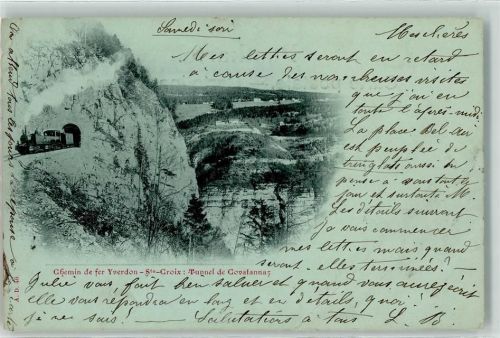 Samedi soir
Mes chères
Mes lettres seront en retard
à cause des nombreuses visites
que j'ai eu
toute l'après-midi.
La place Bel-Air
est peuplée de
aussi on
pense à vous tout
jour et surtout à M.
Les détails suivront
Je vais commencer
mes lettres mais quand
seront-elles terminées?
Chemin de fer Yverdon-Ste-Croix: Tunnel de Covatannaz
Julie vous fait bien saluer et quand vous aurez écrit
elle vous répondra en long et en détails, quoi?
je ne sais! Salutations à tous L. B.
On attend tous les jours
réponse